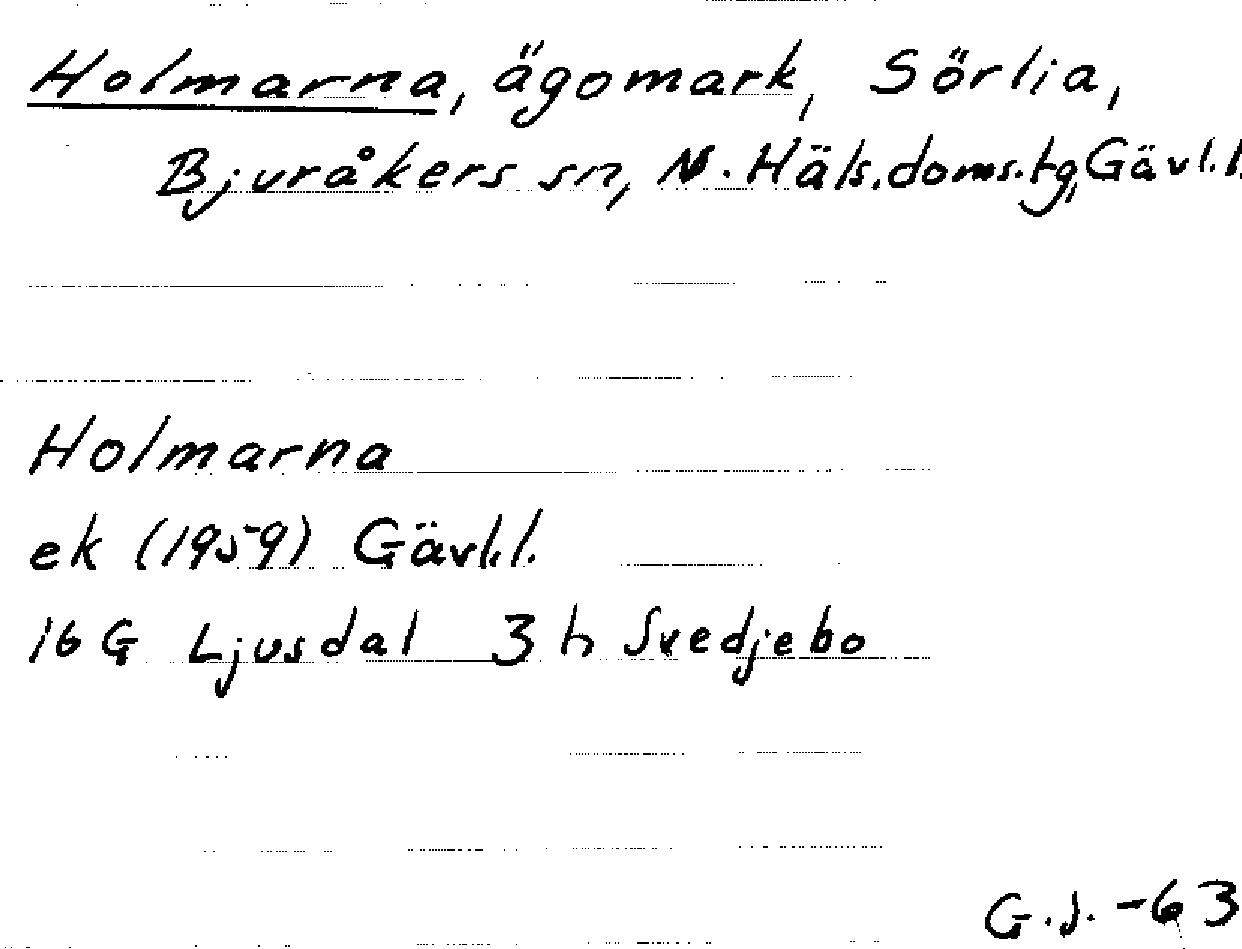 Holmarna, ägomark, Sörlia,
Bjuråkers sn, N. Häls. doms. tg, Gävl. l.
Holmarna
ek (1959) Gävl. l.
16 G Ljusdal 3 h Svedjebo
G. J. -63